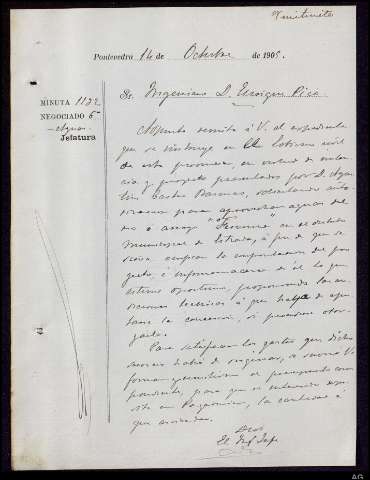 Veintisiete
Pontevedra 14 de Octubre de 1905.
MINUTA 1122
NEGOCIADO 5º
Aguas
Jefatura
Sr. Ingeniero D. Enrique Pico
Adjunto remito á V. el expediente
que se instruye en el Gobierno civil
de esta provincia, en virtud de instan-
cia y proyecto presentados por D.
Castro solicitando auto-
rización para aprovechar aguas del
rio
municipal de Estrada, á fin de que se
sirva la confrontación del pro-
yecto é informar acerca de él lo que
estime oportuno, proponiendo las con-
diciones á que habrá de ajus-
tarse la concesión, si procediese otor-
garla.
Para satisfacer los gastos que dicho
servicio habrá de originar, se servirá V.
formar y remitirme el presupuesto corres-
pondiente, para que el interesado depo-
site en Pagaduría, la cantidad á
que ascienda.
Dios
El Ingº Jefe
AG